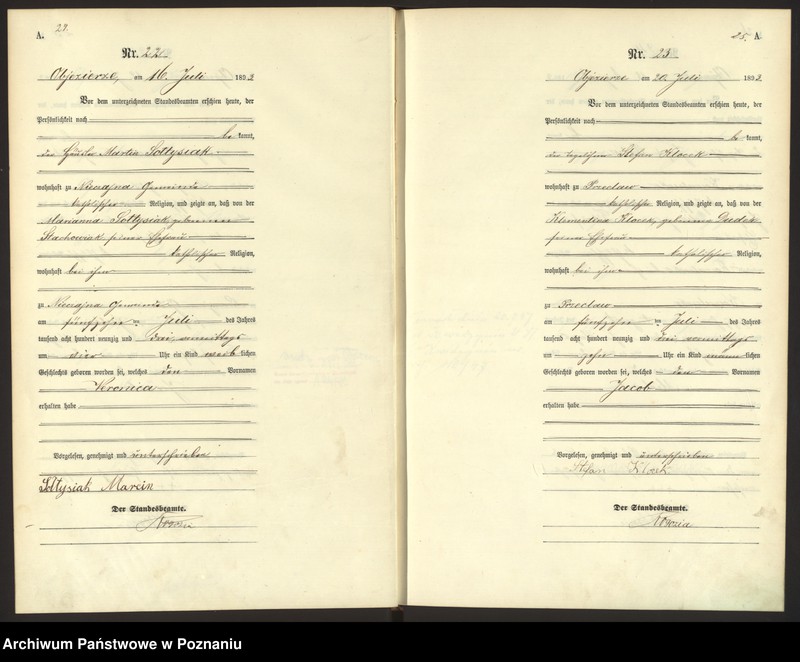 A.
24.
Nr. 22
Objezierze, am 16. Juli 1893
Vor dem unterzeichneten Standesbeamten erschien heute, der
Persönlichkeit nach
be kannt,
der Häusler Martin Sołtysiak
wohnhaft zu Nieczajna Gemeinde
katholischer Religion, und zeigte an, daß von der
Marianna Sołtysiak, geborenen
Stachowiak seiner Ehefrau
katholischer Religion,
wohnhaft bei ihm
zu Nieczajna Gemeinde
am fünfzehn ten Juli des Jahres
tausend acht hundert neunzig und drei vormittags
um vier Uhr ein Kind weib lichen
Geschlechts geboren worden sei, welches den Vornamen
Veronica
erhalten habe
Vorgelesen, genehmigt und unterschrieben
Sołtysiak Marcin
Der Standesbeamte.
25. A
Nr. 23
Objezierze am 20. Juli 1893
Vor dem unterzeichneten Standesbeamten erschien heute, der
Persönlichkeit nach
be kannt,
der Stefan Klocek
wohnhaft zu
katholischer Religion, und zeigte an, daß von der
Klementina Klocek, geborenen Dudek
seiner Ehefrau
katholischer Religion,
wohnhaft bei ihm
zu
am fünfzehn ten Juli des Jahres
tausend acht hundert neunzig und drei vormittags
um zehn Uhr ein Kind männ lichen
Geschlechts geboren worden sei, welches den Vornamen
Jacob
erhalten habe
Vorgelesen, genehmigt und unterschrieben
Stefan Klocek
Der Standesbeamte.
Archiwum Państwowe w Poznaniu